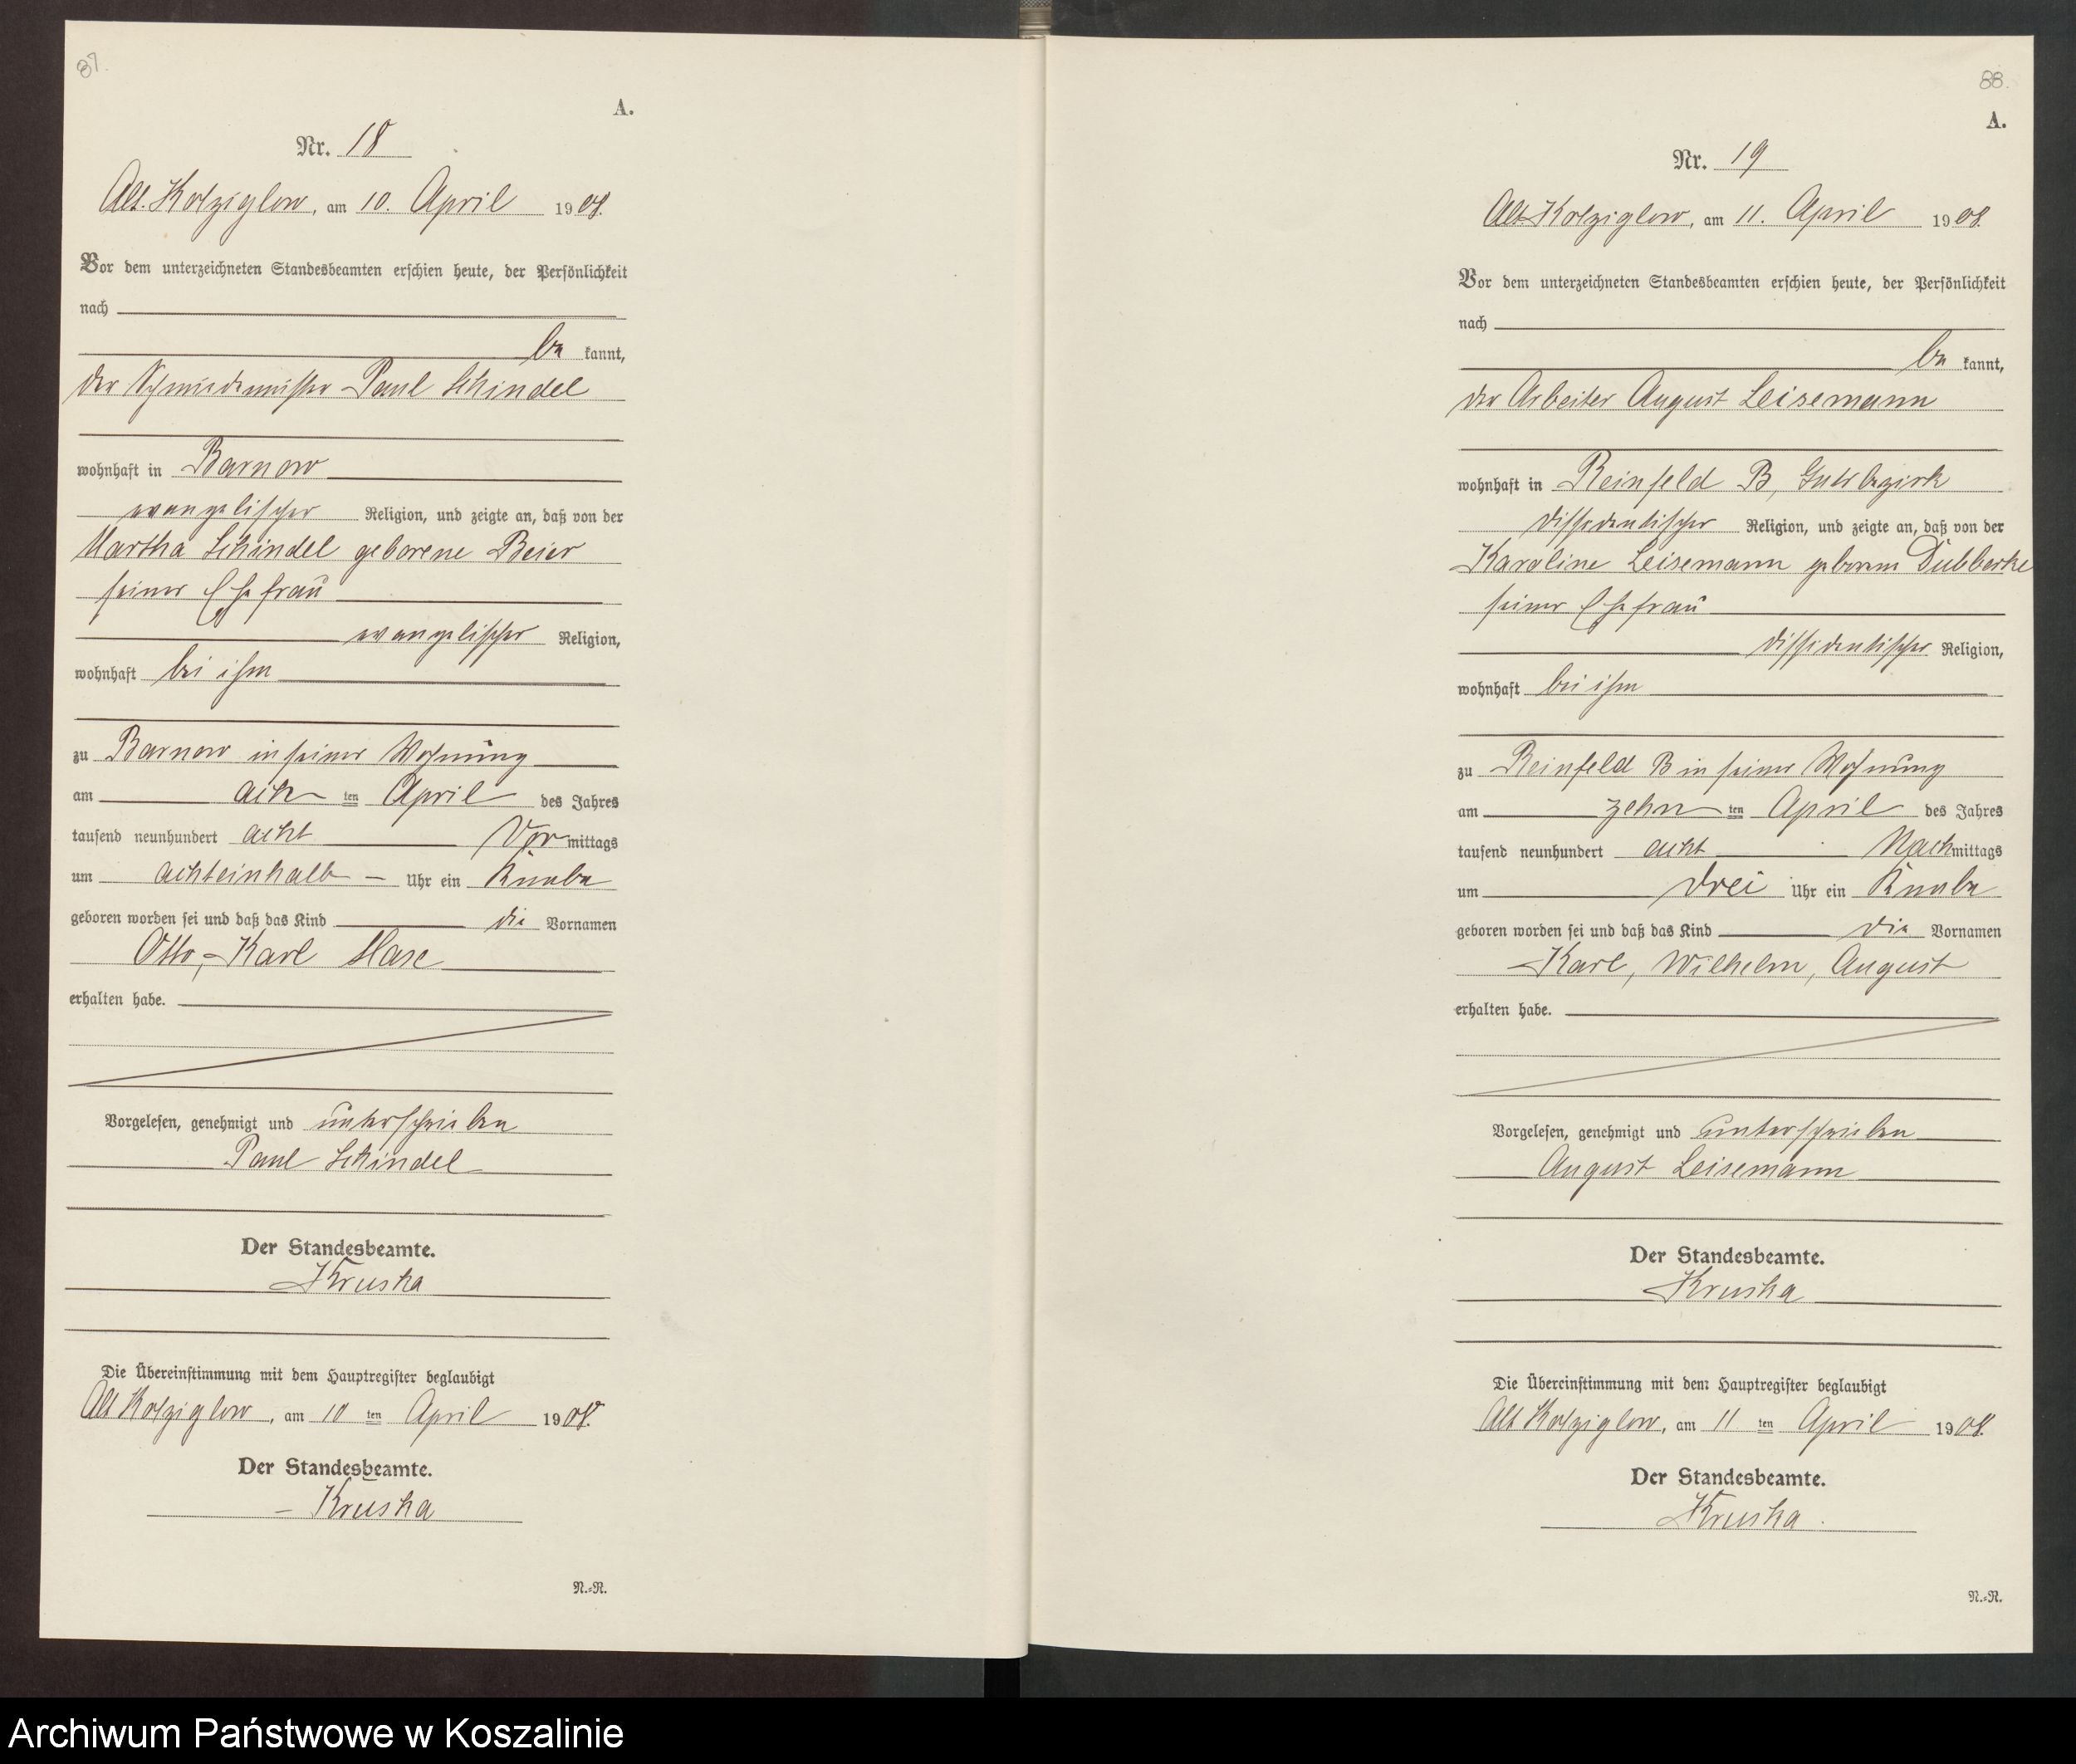 87.
A.
Nr. 18
Alt. Kolziglow, am 10. April 1908.
Vor dem unterzeichneten Standesbeamten erschien heute, der Persönlichkeit
nach
be kannt,
der Schmiedemeister Paul Schindel
wohnhaft in Barnow
evangelischer Religion, und zeigte an, daß von der
Martha Schindel geborene Beier
seiner Ehefrau
evangelischer Religion,
wohnhaft bei ihm
zu Barnow in seiner Wohnung
am acht ten April des Jahres
tausend neunhundert acht Vor mittags
um achteinhalb Uhr ein Knabe
geboren worden sei und daß das Kind die Vornamen
Otto, Karl
erhalten habe.
Vorgelesen, genehmigt und unterschrieben
Paul Schindel
Der Standesbeamte.
Kruska
Die Übereinstimmung mit dem Hauptregister beglaubigt
Alt Kolziglow, am 10 ten April 1908.
Der Standesbeamte.
Kruska
N.=R.
88.
A.
Nr. 19
Alt Kolziglow, am 11. April 1908.
Vor dem unterzeichneten Standesbeamten erschien heute, der Persönlichkeit
nach
be kannt,
der Arbeiter August Leisemann
wohnhaft in Reinfeld B, Gutsbezirk
dissidentischer Religion, und zeigte an, daß von der
Karoline Leisemann geborene Dubberke
seiner Ehefrau
dissidentischer Religion,
wohnhaft bei ihm
zu Reinfeld B in seiner Wohnung
am zehn ten April des Jahres
tausend neunhundert acht Nach mittags
um drei Uhr ein Knabe
geboren worden sei und daß das Kind die Vornamen
Karl, Wilhelm, August
erhalten habe.
Vorgelesen, genehmigt und unterschrieben
August Leisemann
Der Standesbeamte.
Kruska
Die Übereinstimmung mit dem Hauptregister beglaubigt
Alt Kolziglow, am 11 ten April 1908.
Der Standesbeamte.
Kruska
N.=R.
Archiwum Państwowe w Koszalinie